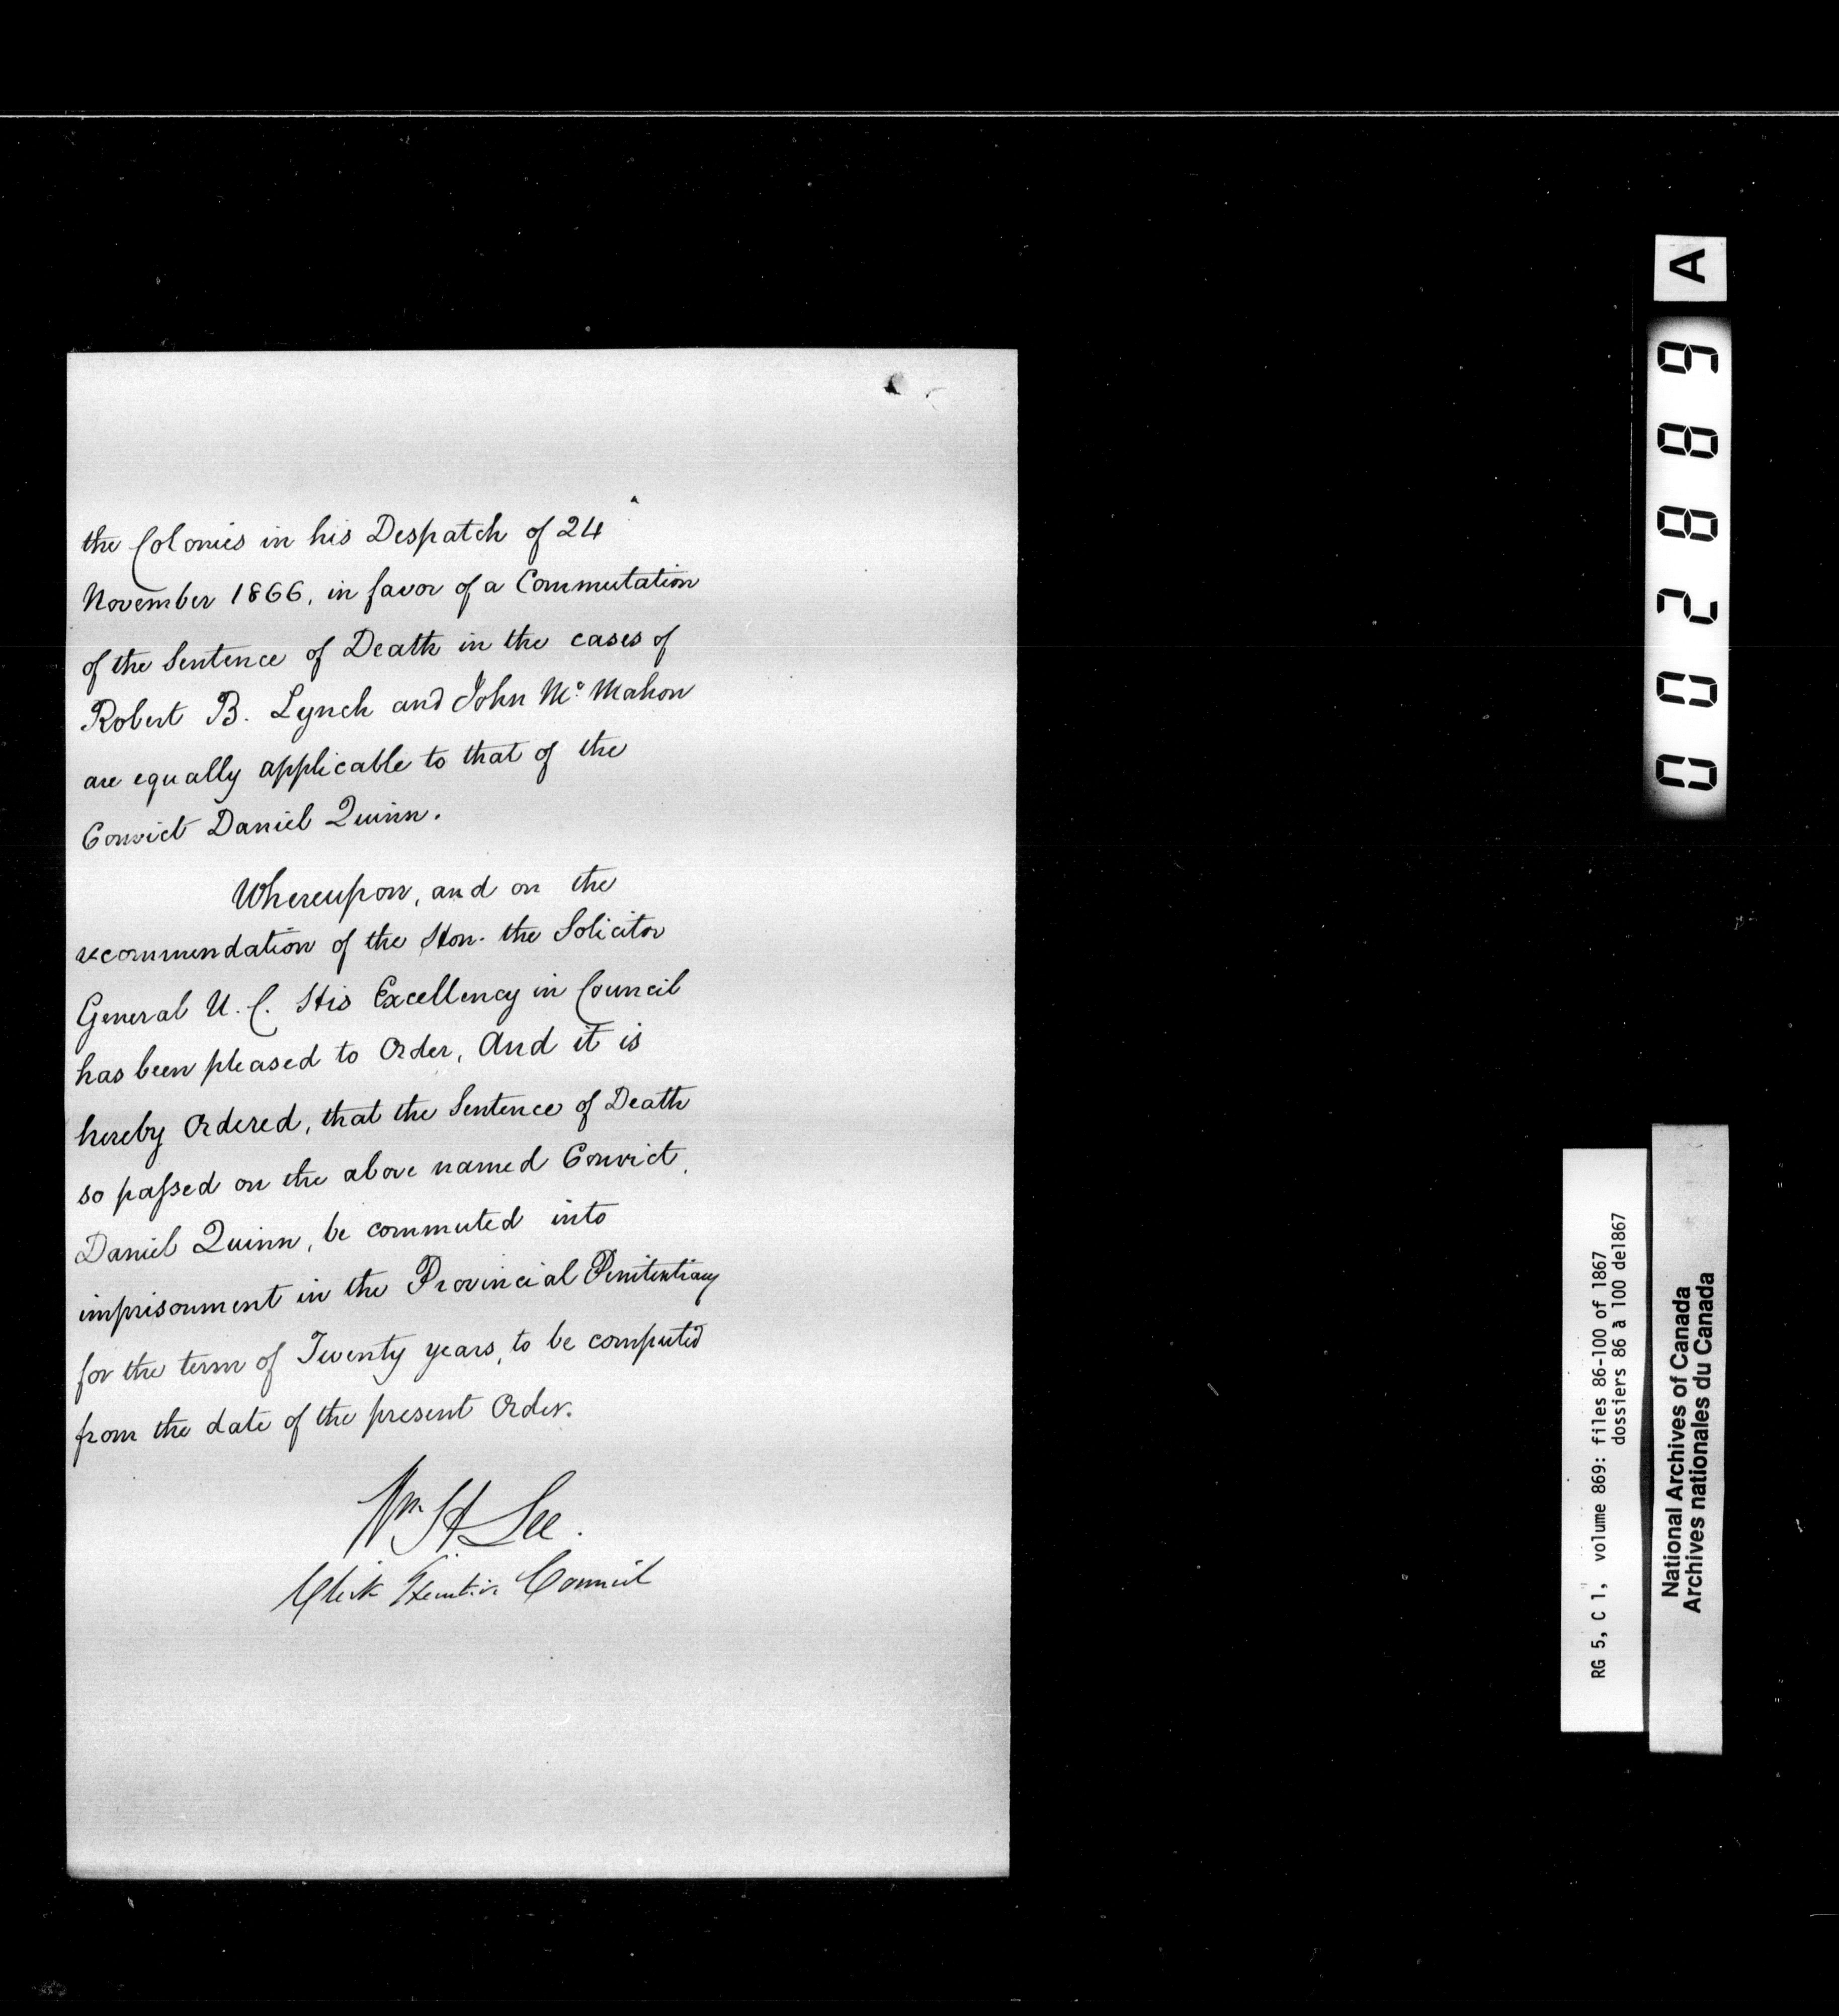 the Colonies in his Despatch of 24
November 1866, in favor of a Commutation
of the Sentence of Death in the cases of
Robert B. Lynch and John Mc Mahon
are equally applicable to that of the
Convict Daniel Quinn.
Whereupon, and on the
recommendation of the Hon. the Solicitor
General U. C. His Excellency in Council
has been pleased to Order, And it is
hereby Ordered, that the Sentence of Death
so passed on the above named Convict,
Daniel Quinn, be commuted into
imprisonment in the Provincial Penitentiary
for the term of Twenty years, to be computed
from the date of the present Order.
Wm H Lee.
Clerk Executive Council
002889 A
RG 5, C 1, volume 869: files 86-100 of 1867
dossiers 86 à 100 de1867
National Archives of Canada
Archives nationales du Canada